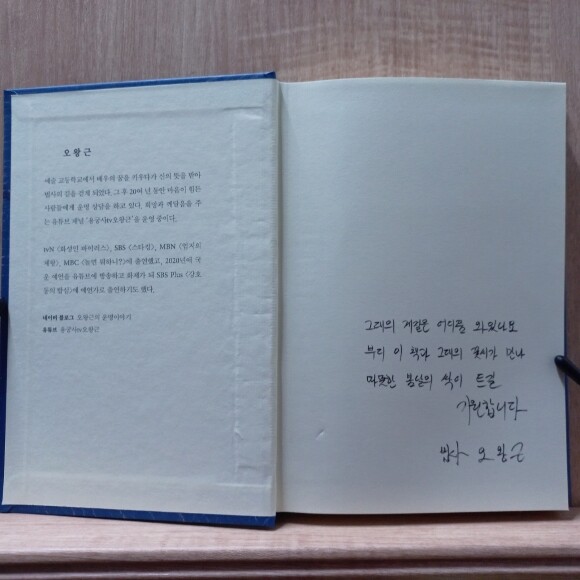 오왕근
예술 고등학교에서 배우의 꿈을 키우다가 신의 뜻을 받아
법사의 길을 걷게 되었다. 그 후 20여 년 동안 마음이 힘든
사람들에게 운명 상담을 하고 있다. 희망과 깨달음을 주
는 유튜브 채널 '용궁사tv오왕근'을 운영 중이다.
tvN 《화성인 바이러스》, SBS 《스타킹》, MBN 《엄지의
제왕》, MBC 《놀면 뭐하니?》에 출연했고, 2020년에 국
운 예언을 유튜브에 방송하고 화제가 되 SBS Plus 《강호
동의 밥심》에 예언가로 출연하기도 했다.
네이버 블로그 오왕근의 운명이야기
유튜브 용궁사tv오왕근
그대의 계절은 어디쯤 와있나요
부디 이 책과 그대의 꽃씨가 만나
따뜻한 봄날의 싹이 트길
기원합니다
법사 오왕근